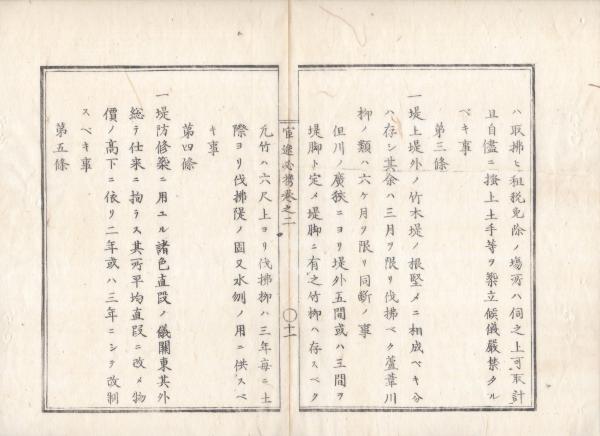 ハ取拂ヒ租税免除ノ場所ハ伺之上可取計
且自儘ニ掻上土手等ヲ築立候儀嚴禁タル
ベキ事
第三條
一堤上堤外ノ竹木堤ノ根堅メニ相成ベキ分
ハ存シ其余ハ三月ヲ限リ伐拂ベク蘆葦川
柳ノ類ハ六ケ月ヲ限リ同斷ノ事
但川ノ廣狹ニヨリ堤外五間或ハ三間ヲ
堤脚ト定メ堤脚ニ有之竹柳ハ存スベク
官途必携巻之二
〇十一
尤竹ハ六尺上ヨリ伐拂柳ハ三年毎ニ土
際ヨリ伐拂堤ノ固又水刎ノ用ニ供スベ
キ事
第四條
一堤防修築ニ用ユル諸色直段ノ儀關東其外
總テ仕来ニ拘ラス其所平均直段ニ改メ物
價ノ高下ニ依リ二年或ハ三年ニシテ改制
スベキ事
第五條